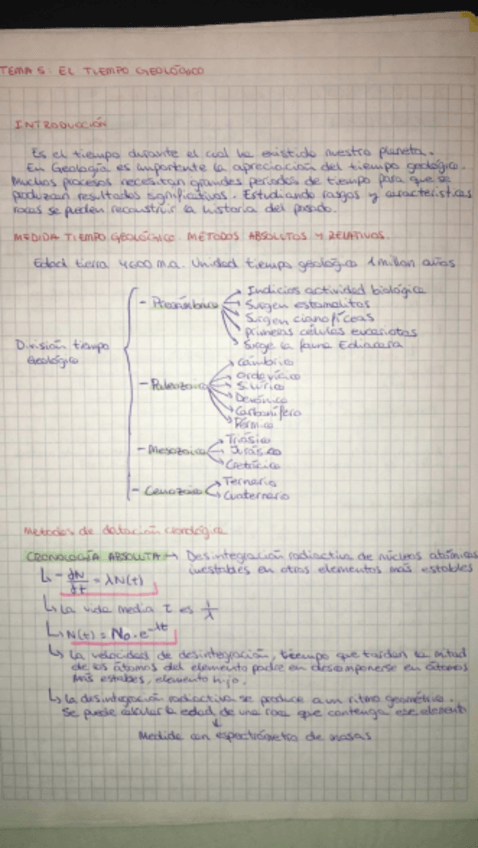 TEMA 5: EL TIEMPO GEOLÓGICO
INTRODUCCIÓN
Es el tiempo durante el cual ha existido nuestro planeta.
En Geología es importante la apreciación del tiempo geológico.
Muchos procesos necesitan grandes periodos de tiempo para que se
produzcan resultados significativos. Estudiando rasgos y características
rocas se pueden reconstruir la historia del pasado.
MEDIDA TIEMPO GEOLÓGICO. MÉTODOS ABSOLUTOS Y RELATIVOS.
Edad tierra 4600 m.a. Unidad tiempo geológico 1 millon años
División tiempo
Geológico
- Precámbrico
Indicios actividad biológica
Surgen estomatolitos
Surgen cianofíceas
Primeras células eucariotas
Surge la fauna Ediacara
- Paleozoico
Cámbrico
Ordovícico
Silúrico
Devónico
Carbonífero
Pérmico
- Mesozoico
Triásico
Jurásico
Cretácico
- Cenozoico
Ternario
Cuaternario
Métodos de datación cronológica
CRONOLOGÍA ABSOLUTA → Desintegración radiactiva de núcleos atómicos
inestables en otros elementos más estables
↳ - dN/dt = λN(t)
↳ La vida media τ es 1/λ
↳ N(t) = N₀ · e^-λt
↳ La velocidad de desintegración, tiempo que tardan la mitad
de los átomos del elemento padre en descomponerse en átomos
más estables, elemento hijo.
↳ La desintegración radiactiva se produce a un ritmo geométrico.
Se puede calcular la edad de una roca que contenga ese elemento
↓
Medida con espectrómetro de masas